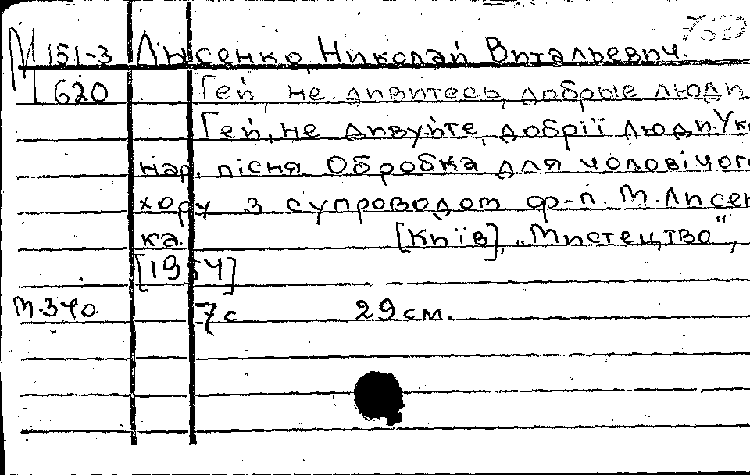 М 151-3 Лысенко, Николай Витальевич.
620 Гей, не дивитесь, добрые люди.
Гей, не дивуйте, добрії люди! Ук
нар. пісня. Обробка для чоловічог
хору з супроводом ф-п. М. Лисен
ка. [Київ], „Мистецтво",
[1954]
М-340 7с 29 см.